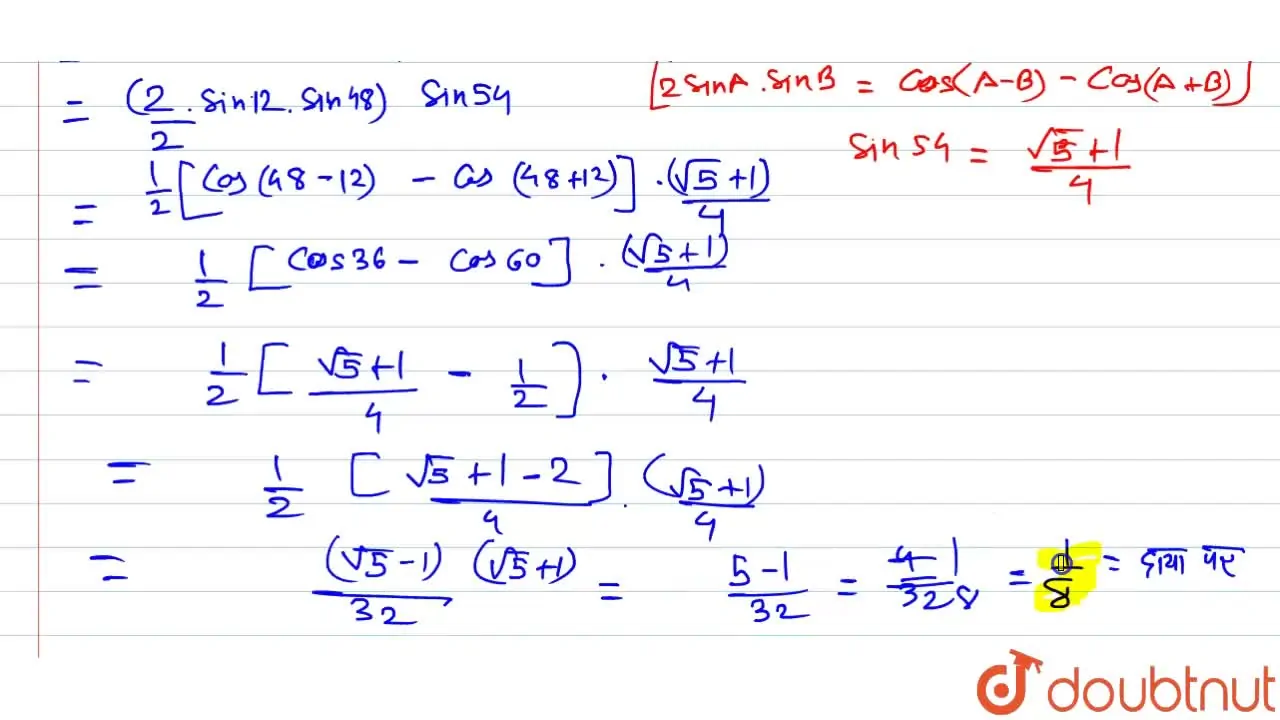 = (2 . Sin12. Sin48)/2 Sin54 [2SinA.SinB = Cos(A-B) - Cos(A+B)]
Sin54 = (√5+1)/4
= 1/2 [Cos(48-12) - Cos(48+12)] . (√5+1)/4
= 1/2 [Cos36 - Cos60] . (√5+1)/4
= 1/2 [(√5+1)/4 - 1/2] . (√5+1)/4
= 1/2 [(√5+1-2)/4] . (√5+1)/4
= (√5-1)(√5+1)/32 = (5-1)/32 = 4/32 1 8 = 1/8 = दायां पद
doubtnut